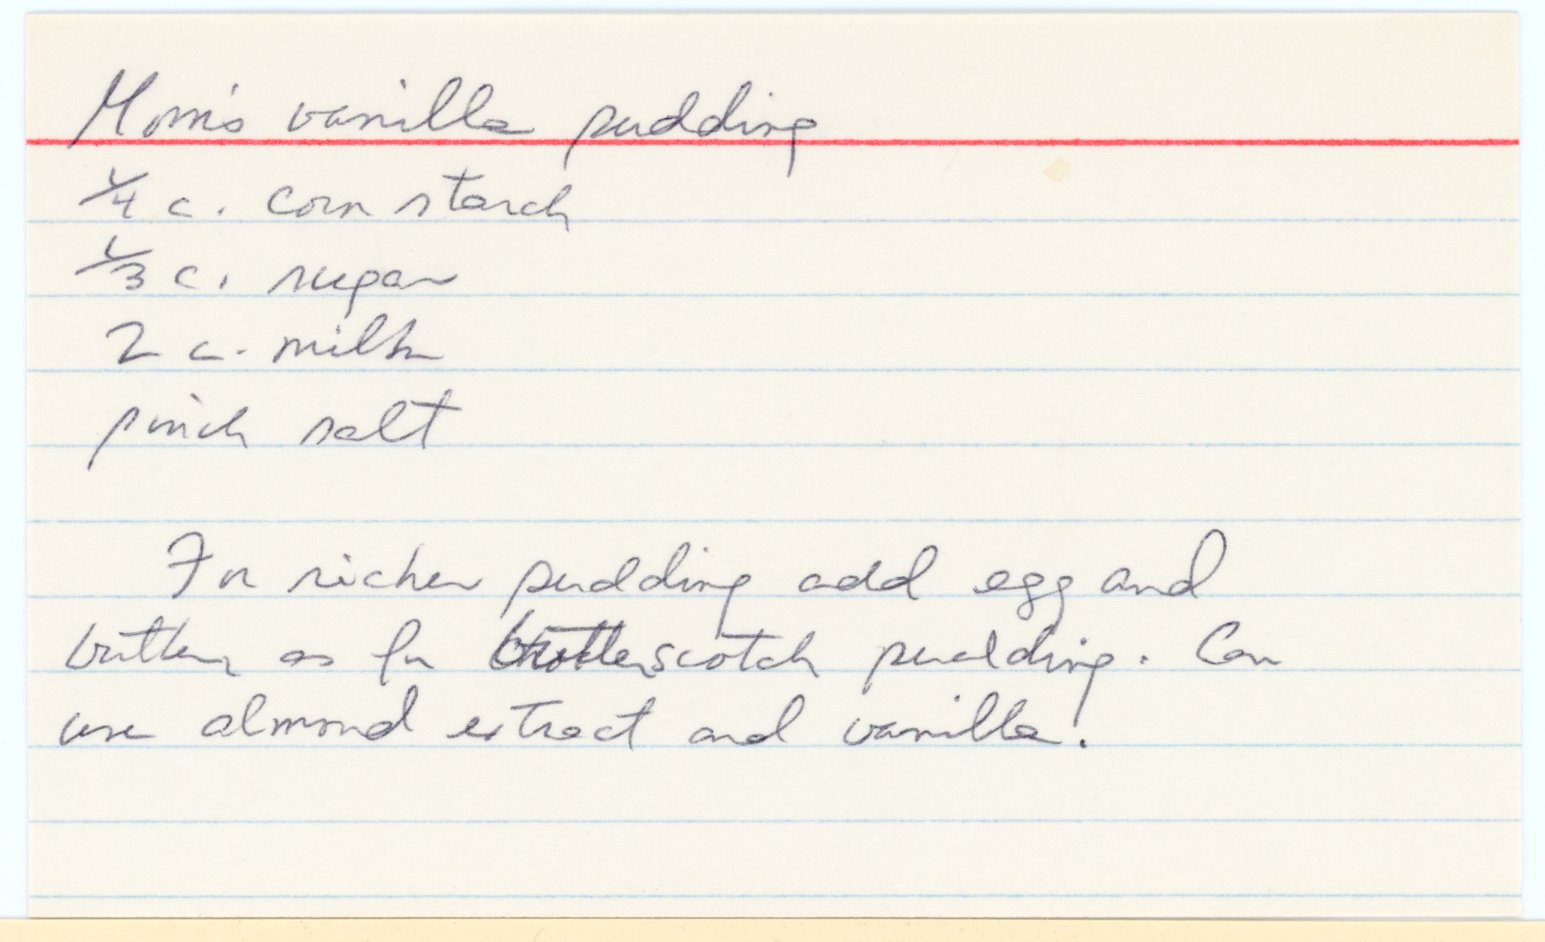 Mom's vanilla pudding
1/4 c. corn starch
1/3 c. sugar
2 c. milk
pinch salt
For richer pudding add egg and
butter as for butterscotch pudding. Can
use almond extract and vanilla.